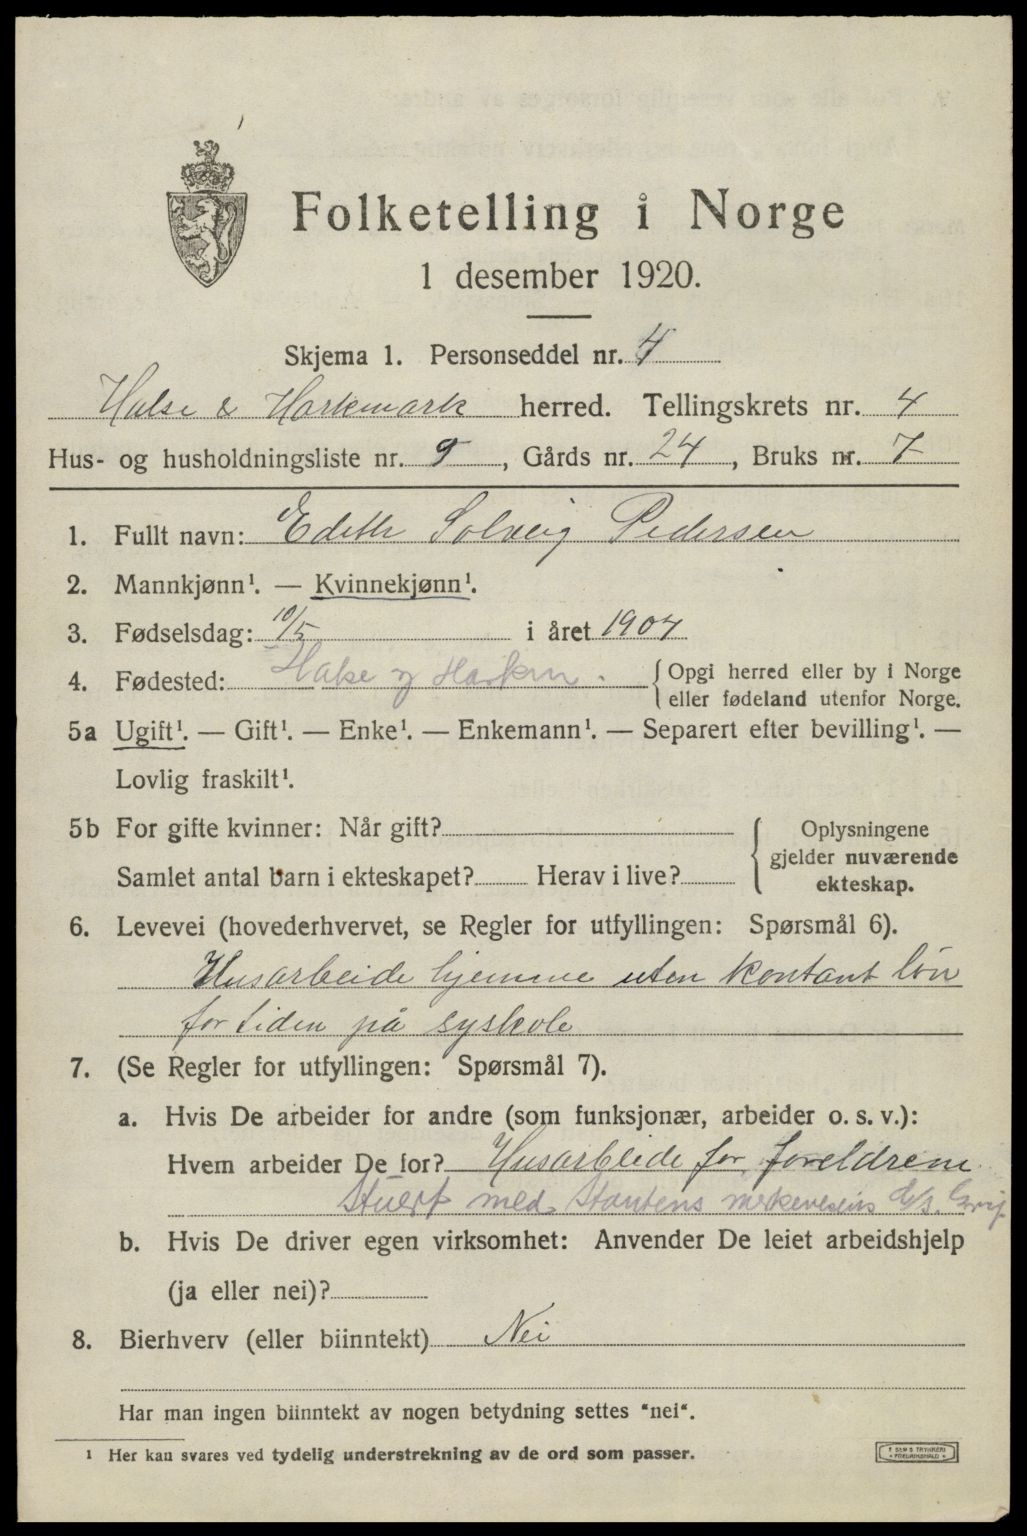 Folketelling i Norge
1 desember 1920.
Skjema 1. Personseddel nr. 4
Halse & Harkmark herred. Tellingskrets nr. 4
Hus- og husholdningsliste nr. 9, Gårds nr. 24, Bruks nr. 7
1. Fullt navn: Edith Solveig Pedersen
2. Mannkjønn¹. — Kvinnekjønn¹.
3. Fødselsdag: 10/5 i året 1904
4. Fødested: Halse og Harkm. { Opgi herred eller by i Norge
eller fødeland utenfor Norge.
5a Ugift¹. — Gift¹. — Enke¹. — Enkemann¹. — Separert efter bevilling¹. —
Lovlig fraskilt¹.
5b For gifte kvinner: Når gift? { Oplysningene
gjelder nuværende
ekteskap.
Samlet antal barn i ekteskapet? Herav i live?
6. Levevei (hovederhvervet, se Regler for utfyllingen: Spørsmål 6).
Husarbeide hjemme uten kontant løn
for tiden på syskole
7. (Se Regler for utfyllingen: Spørsmål 7).
a. Hvis De arbeider for andre (som funksjonær, arbeider o. s. v.):
Hvem arbeider De for? Husarbeide for foreldrene
Stuert med Statens merkevesens
b. Hvis De driver egen virksomhet: Anvender De leiet arbeidshjelp
(ja eller nei)?
8. Bierhverv (eller biinntekt) Nei
Har man ingen biinntekt av nogen betydning settes "nei".
¹ Her kan svares ved tydelig understrekning av de ord som passer.